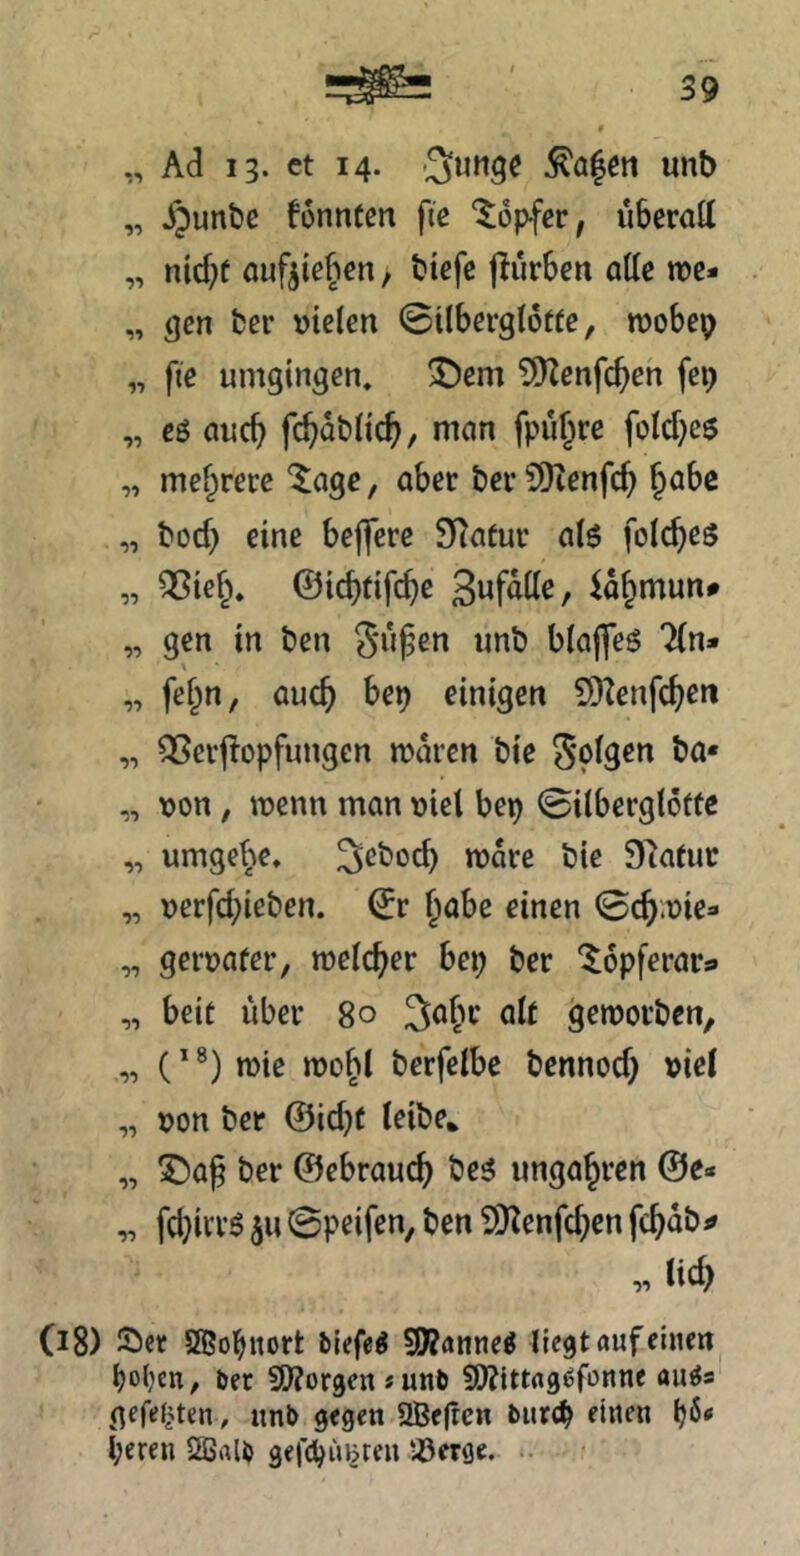 39
„ Ad 13. et 14. Junge Kaßen und
„ Hunde könnten sie Töpfer, überall
„ nicht aufziehen, diese stürben alle we-
„ gen der vielen Silberglötte, wobey
„ sie umgingen. Dem Menschen sey
„ es auch schädlich, man spühre solches
„ mehrere Tage, aber der Mensch habe
„ doch eine bessere Natur als solches
„ Vieh. Gichtische Zufälle, Lähmun-
„ gen in den Füßen und blasses An-
„ sehn, auch bey einigen Menschen
„ Verstopfungen wären die Folgen da-
„ von, wenn man viel bey Silberglötte
„ umgehe. Jedoch wäre die Natur
„ verschieden. Er habe einen Schwie-
„ gervater, welcher bey der Töpferar-
„ beit über 80 Jahr alt geworden,
„ (18) wie wohl derselbe dennoch viel
„ von der Gicht leide.
„ Daß der Gebrauch des ungahren Ge-
„ schirrs zu Speisen, den Menschen schäd-
„ lich
(18) Der Wohnort dieses Mannes liegt auf einen
hohen, der Morgen- und Mittagssonne aus-
gesetzten, und gegen Westen durch einen hö-
heren Wald geschützten Berge.